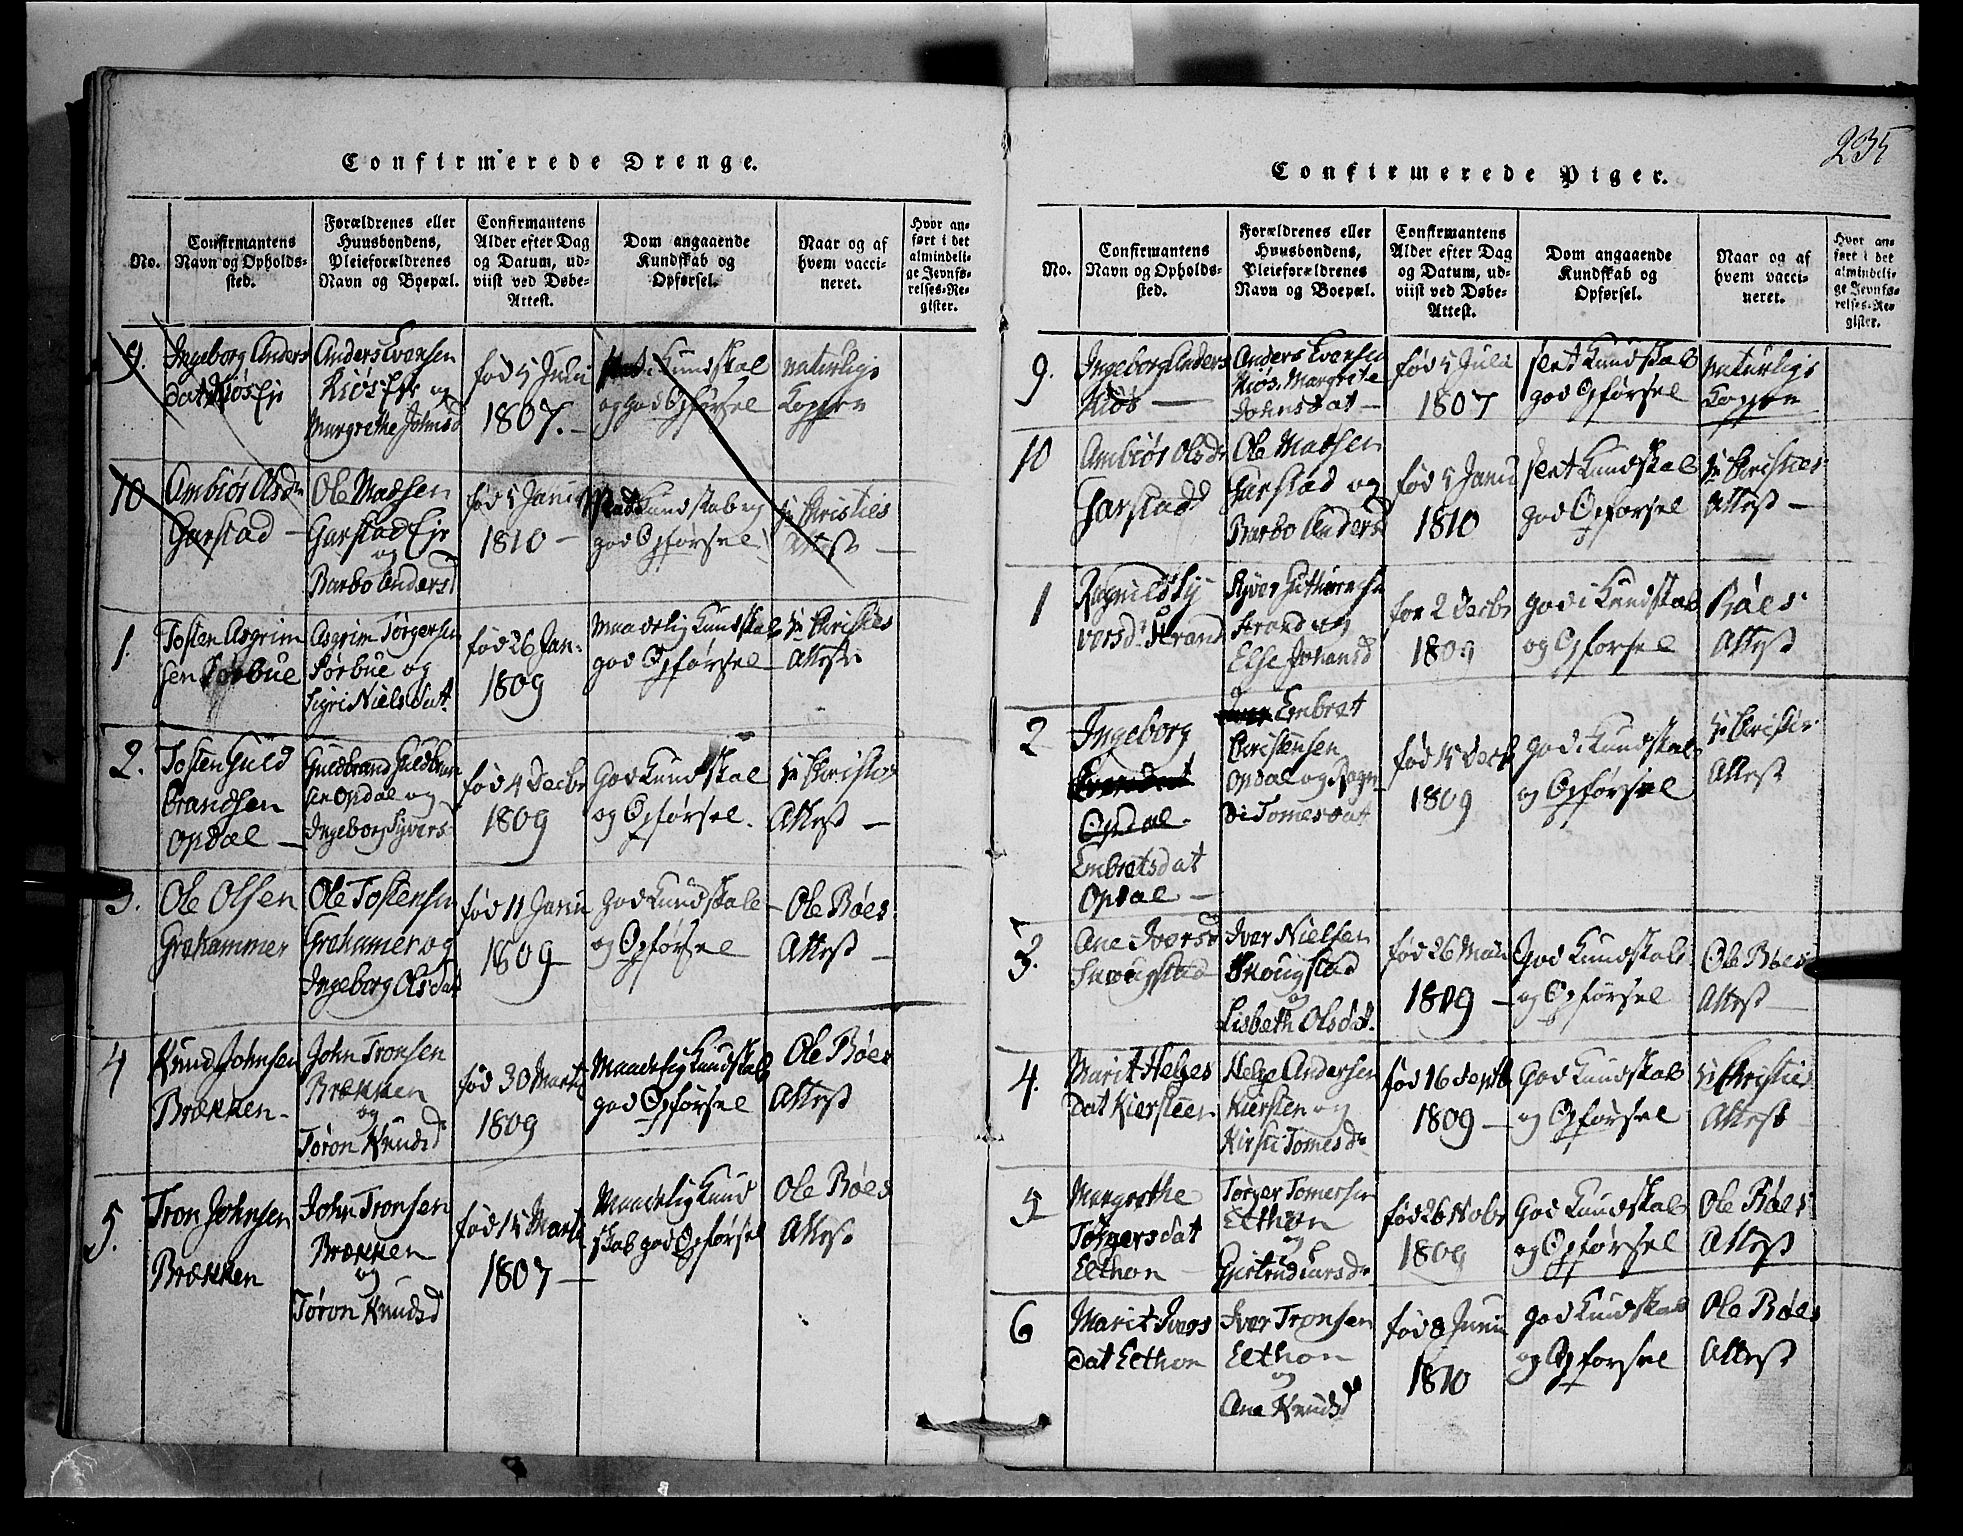 Confirmerede Drenge.
No.
Confirmantens
Navn og Opholds-
sted.
Forældrenes eller
Huusbondens,
Pleieforældrenes
Navn og Boepæl.
Confirmantens
Alder efter Dag
og Datum, ud-
viist ved Døbe-
Attest.
Dom angaaende
Kundskab og
Opførsel.
Naar og af
hvem vacci-
neret.
Hvor an-
ført i det
almindeli-
ge Jevnfø-
relses-Re-
gister.
9.
Ingeborg Anders
dat Kiøs Eje
Anders Evensen
Kiøs Eje og
Margrethe Johnsd
fød 5 Juli
1807.
Kundskab
og god Opførsel
naturlige
Kopper
10
Ambiør Olsdr
Garstad
Ole Madsen
Garstad Eje
og
Barbo Andersd
fød 5 Janu
1810
Kundskab og
god Opførsel
Hr Christies
Attest
1.
Tosten Asgrim
sen Sørbue
Asgrim Torgersen
Sørbue og
Sigri Nielsdat.
fød 26 Jan.
1809
Maadelig Kundskab
god Opførsel
Hr Christies
Attest
2.
Tosten Guld
brandsen
Opdal
Guldbrand Guldbran
sen Opdal og
Ingeborg Syvers
fød 4 Decbr
1809
God Kundskab
og Opførsel.
Hr Christies
Attest
3.
Ole Olsen
Grøhammer
Ole Tostensen
Grøhamer og
Ingeborg Olsdat
fød 11 Janu
1809
god Kundskab
og Opførsel
Ole Bøes
Attest
4
Knud Johnsen
Brækken
John Tronsen
Brækken
og
Tøron Knudsd
fød 30 Marti
1809
Maadelig Kundskab
god Opførsel
Ole Bøes
Attest
5.
Tron Johnsen
Brækken
John Tronsen
Brækken
og
Tøron Knudsd
fød 15 Marti
1807
Maadelig Kund
skab god Opførsel
Ole Bøes
Attest
235
Confirmerede Piger.
No.
Confirmantens
Navn og Opholds-
sted.
Forældrenes eller
Huusbondens,
Pleieforældrenes
Navn og Boepæl.
Confirmantens
Alder efter Dag
og Datum, ud-
viist ved Døbe-
Attest.
Dom angaaende
Kundskab og
Opførsel.
Naar og af
hvem vacci-
neret.
Hvor an-
ført i det
almindeli-
ge Jevnfø-
relses-Re-
gister.
9.
Ingeborg Anders
Kiøs
Anders Evensen
Kiøs, Margrete
Johnsdat
fød 5 Juli
1807
slet Kundskab
god Opførsel
naturlige
Kopper
10
Ambiør Olsdr
Garstad
Ole Madsen
Garstad og
Barbo Andersd
fød 5 Janu
1810
slet Kundskab
god Opførsel
Hr Christies
Attest
1
Ragnild Sy
versd. Strand
Syver
Strand og
Else Johansd
før 2 Decbr
1809
god Kundskab
og Opførsel
Bøes
Attest
2
Ingeborg
Opdal
Embretsdat
Opdal
Embret
Christensen
Opdal og Sogn
di Tomesdat
fød 15 Decb
1809
god Kundskab
og Opførsel
Hr Christies
Attest
3.
Ane Iversd
Skougstad
Iver Nielsen
Skougstad
og
Lisbeth Olsdat.
fød 26 Mai
1809
God Kundskab
og Opførsel
Ole Bøes
Attest
4.
Marit Helges
dat Kiersteen
Helge Andersen
Kiersten og
Kirsti Tomesdr
fød 16 Septb
1809
God Kundskab
og Opførsel
Hr Christies
Attest
5
Margrethe
Torgersdat
Elthon
Torger Tomersen
Elthon
og
Giertrud Larsdr
fød 26 Nobr
1809
God Kundskab
og Opførsel
Ole Bøes
Attest
6
Marit Ivers
dat Elthon
Iver Tronsen
Elthon
og
Ane Knudsd
fød 8 Juni
1810
god Kundskab
og Opførsel
Ole Bøes
Attest